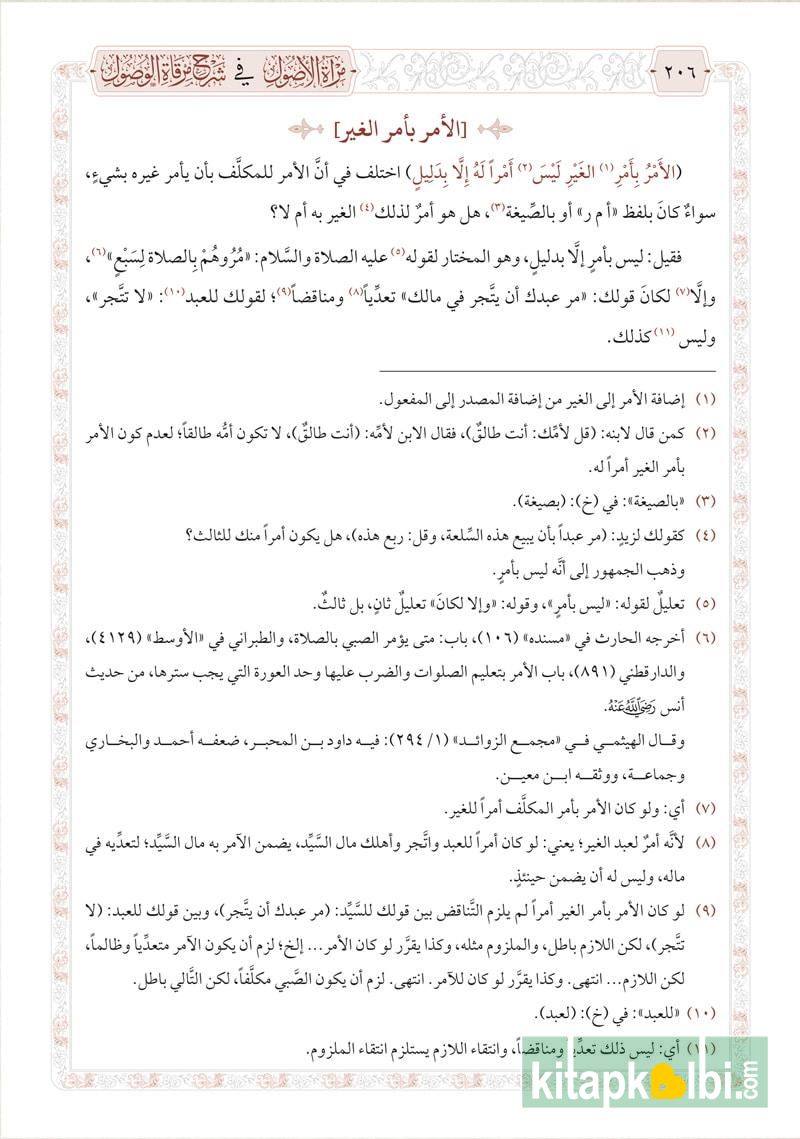 ٢٠٦
مرآة الأصول في شرح مرقاة الوصول
[الأمر بأمر الغير]
(الأَمْرُ بِأَمْرِ(١) الغَيْرِ لَيْسَ(٢) أَمْراً لَهُ إِلَّا بِدَلِيلٍ) اختلف في أنَّ الأمر للمكلَّف بأن يأمر غيره بشيءٍ،
سواءٌ كانَ بلفظ «أ م ر» أو بالصِّيغة(٣)، هل هو أمرٌ لذلك(٤) الغير به أم لا؟
فقيل: ليس بأمرٍ إلَّا بدليلٍ، وهو المختار لقوله(٥) عليه الصلاة والسَّلام: «مُرُوهُمْ بِالصلاة لِسَبْعٍ»(٦)،
وإلَّا(٧) لكانَ قولك: «مر عبدك أن يتَّجر في مالك» تعدِّياً(٨) ومناقضاً(٩)؛ لقولك للعبد(١٠): «لا تتَّجر»،
وليس(١١) كذلك.
(١) إضافة الأمر إلى الغير من إضافة المصدر إلى المفعول.
(٢) كمن قال لابنه: (قل لأمِّك: أنت طالقٌ)، فقال الابن لأمِّه: (أنت طالقٌ)، لا تكون أمُّه طالقاً؛ لعدم كون الأمر
بأمر الغير أمراً له.
(٣) «بالصيغة»: في (خ): (بصيغة).
(٤) كقولك لزيدٍ: (مر عبداً بأن يبيع هذه السِّلعة، وقل: ربع هذه)، هل يكون أمراً منك للثالث؟
وذهب الجمهور إلى أنَّه ليس بأمرٍ.
(٥) تعليلٌ لقوله: «ليس بأمرٍ»، وقوله: «وإلا لكانَ» تعليلٌ ثانٍ، بل ثالثٌ.
(٦) أخرجه الحارث في «مسنده» (١٠٦)، باب: متى يؤمر الصبي بالصلاة، والطبراني في «الأوسط» (٤١٢٩)،
والدارقطني (٨٩١)، باب الأمر بتعليم الصلوات والضرب عليها وحد العورة التي يجب سترها، من حديث
أنس رَضِيَ اللَّهُ عَنْهُ.
وقال الهيثمي في «مجمع الزوائد» (١/ ٢٩٤): فيه داود بن المحبر، ضعفه أحمد والبخاري
وجماعة، ووثقه ابن معين.
(٧) أي: ولو كان الأمر بأمر المكلَّف أمراً للغير.
(٨) لأنَّه أمرٌ لعبد الغير؛ يعني: لو كان أمراً للعبد واتَّجر وأهلك مال السَّيِّد، يضمن الآمر به مال السَّيِّد؛ لتعديه في
ماله، وليس له أن يضمن حينئذٍ.
(٩) لو كان الأمر بأمر الغير أمراً لم يلزم التَّناقض بين قولك للسَّيِّد: (مر عبدك أن يتَّجر)، وبين قولك للعبد: (لا
تتَّجر)، لكن اللازم باطل، والملزوم مثله، وكذا يقرَّر لو كان الأمر... إلخ؛ لزم أن يكون الآمر متعدِّياً وظالماً،
لكن اللازم... انتهى. وكذا يقرَّر لو كان للآمر. انتهى. لزم أن يكون الصَّبي مكلَّفاً، لكن التَّالي باطل.
(١٠) «للعبد»: في (خ): (لعبد).
(١١) أي: ليس ذلك تعدِّياً ومناقضاً، وانتقاء اللازم يستلزم انتقاء الملزوم.
kitapkalbi.com